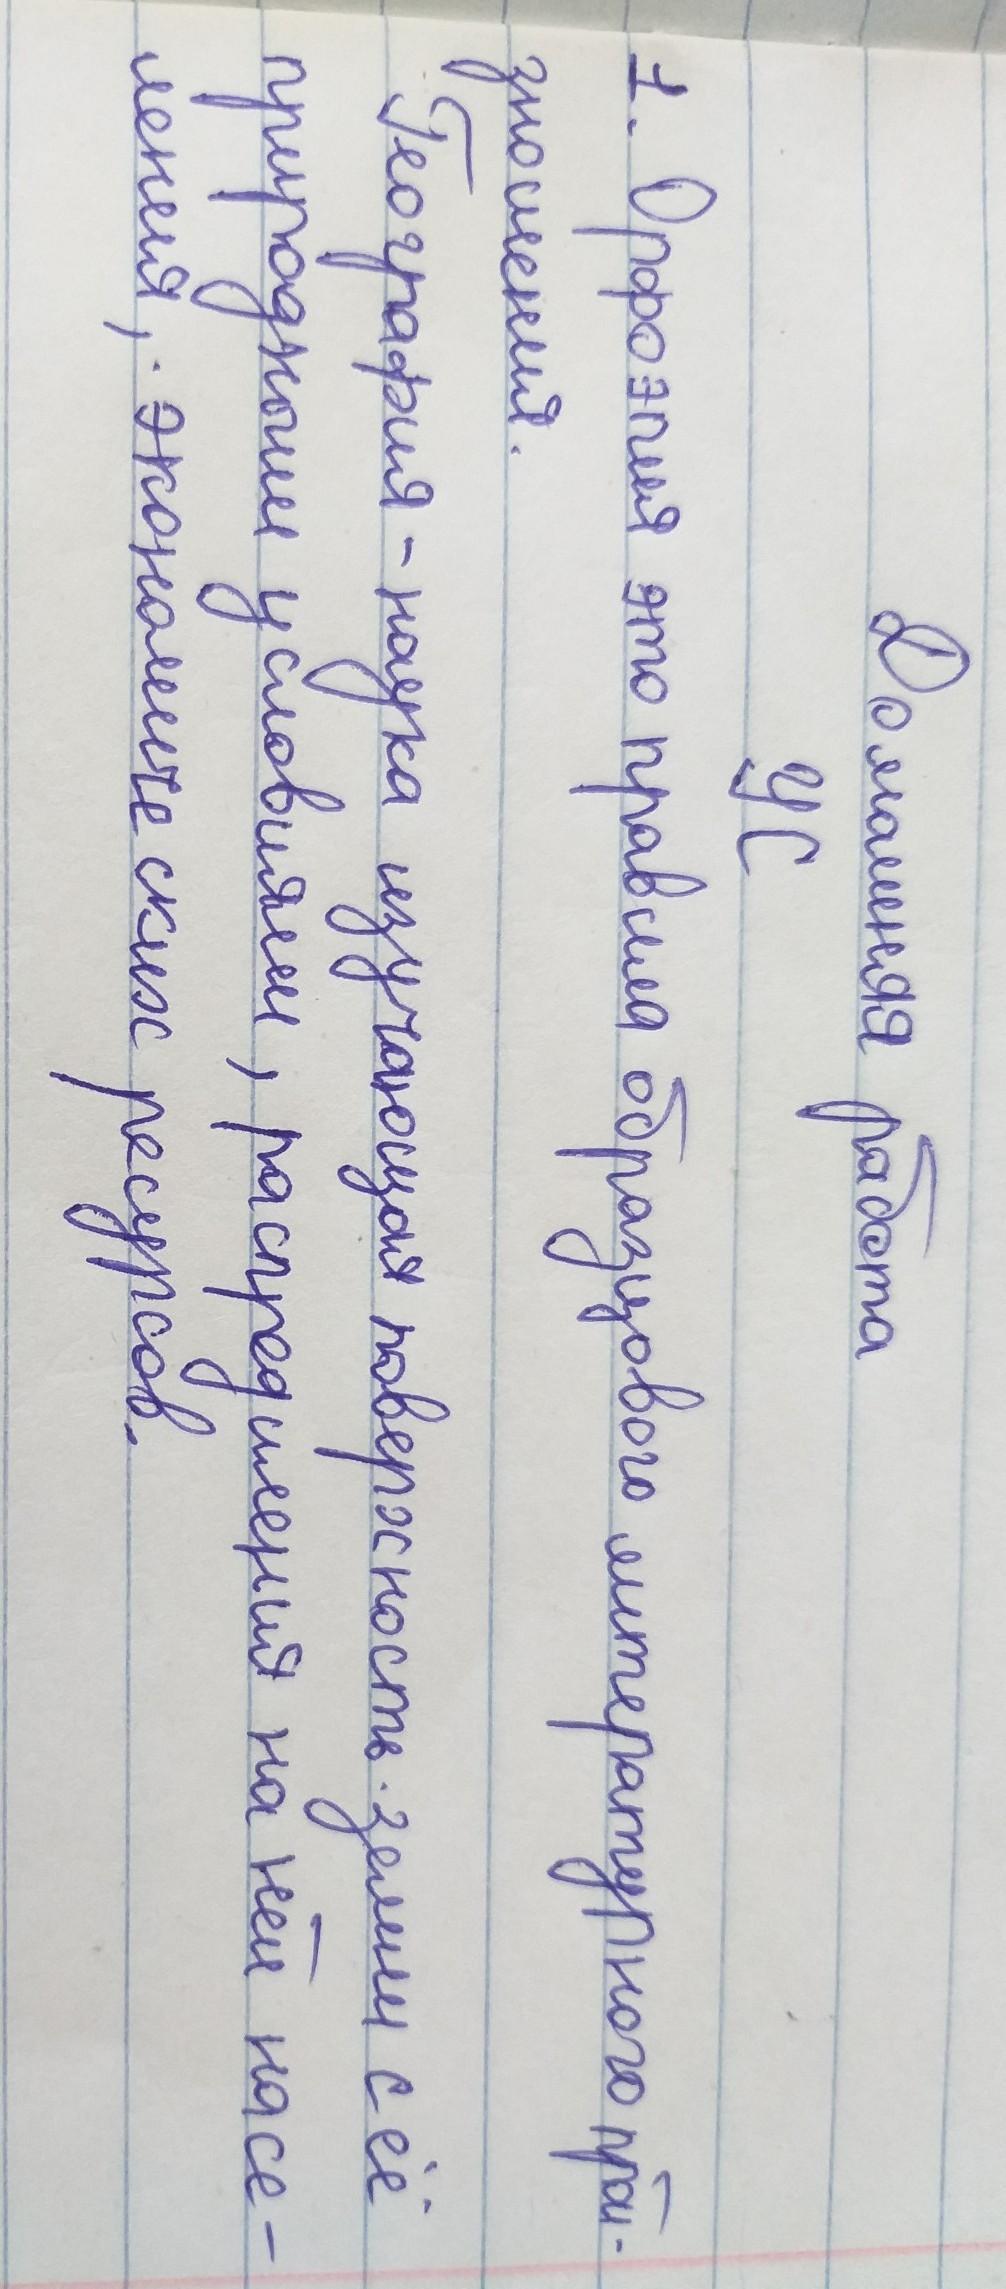 Домашняя работа
УС
1. Орфоэпия это правила образцового литературного прои-
зношения.
География - наука изучающая поверхность земли с её
природными условиями, распределения на ней насе-
ления, экономических ресурсов.